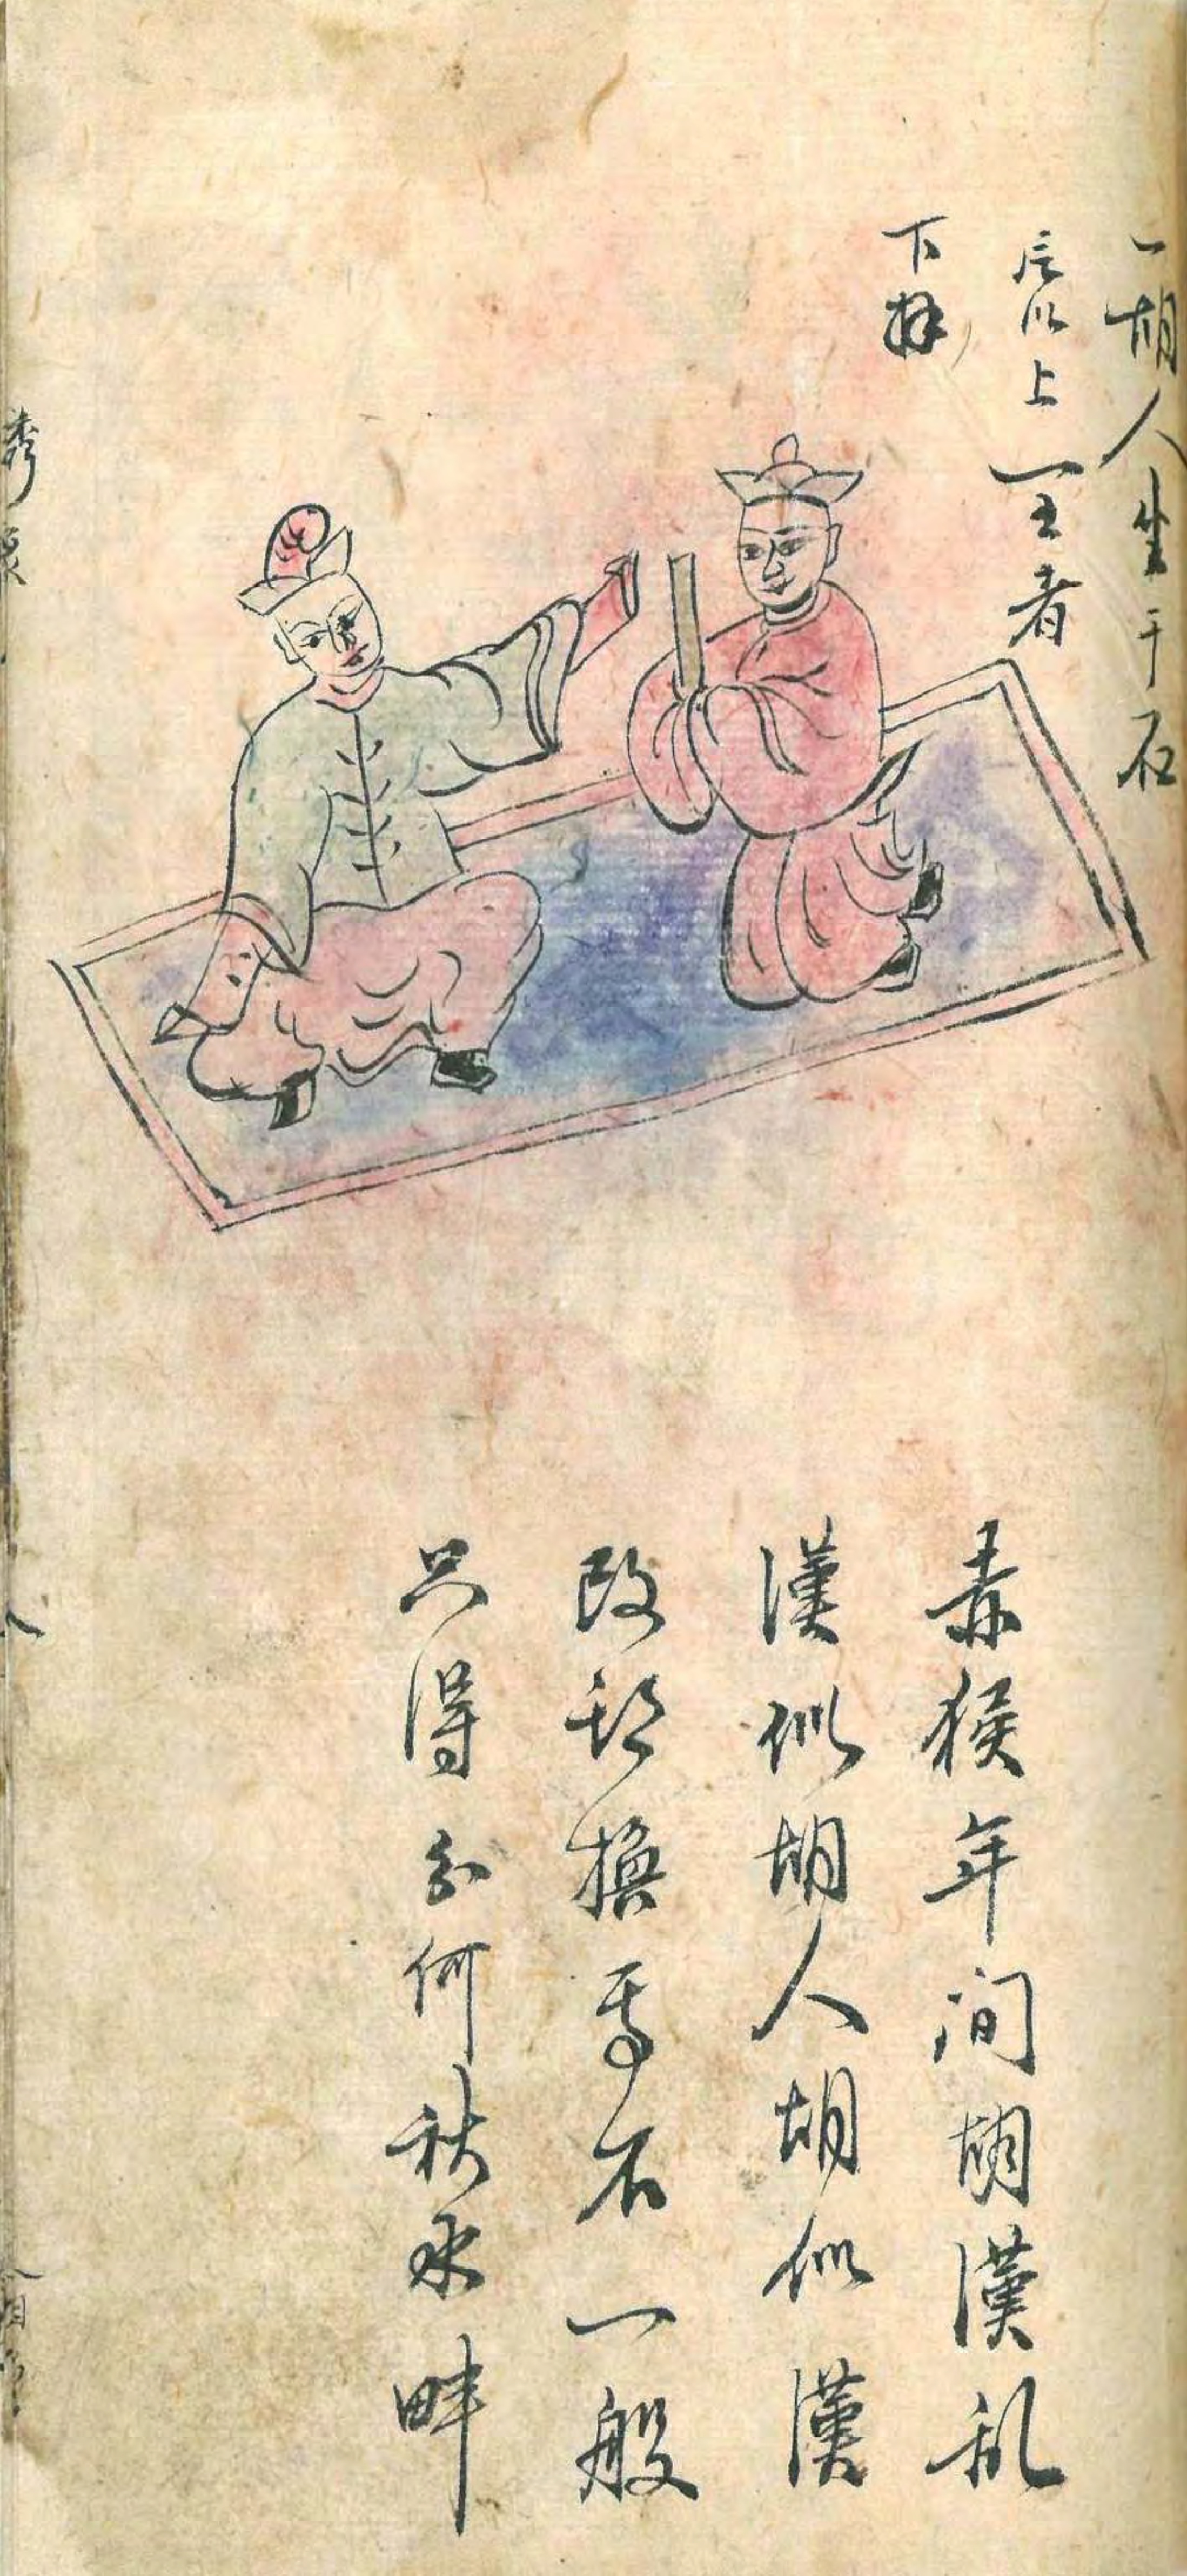 一胡人坐于石
以上一王者
下拜
赤猴年间胡漢乱
漢似胡人胡似漢
改却換 石一般
只得 何秋水畔